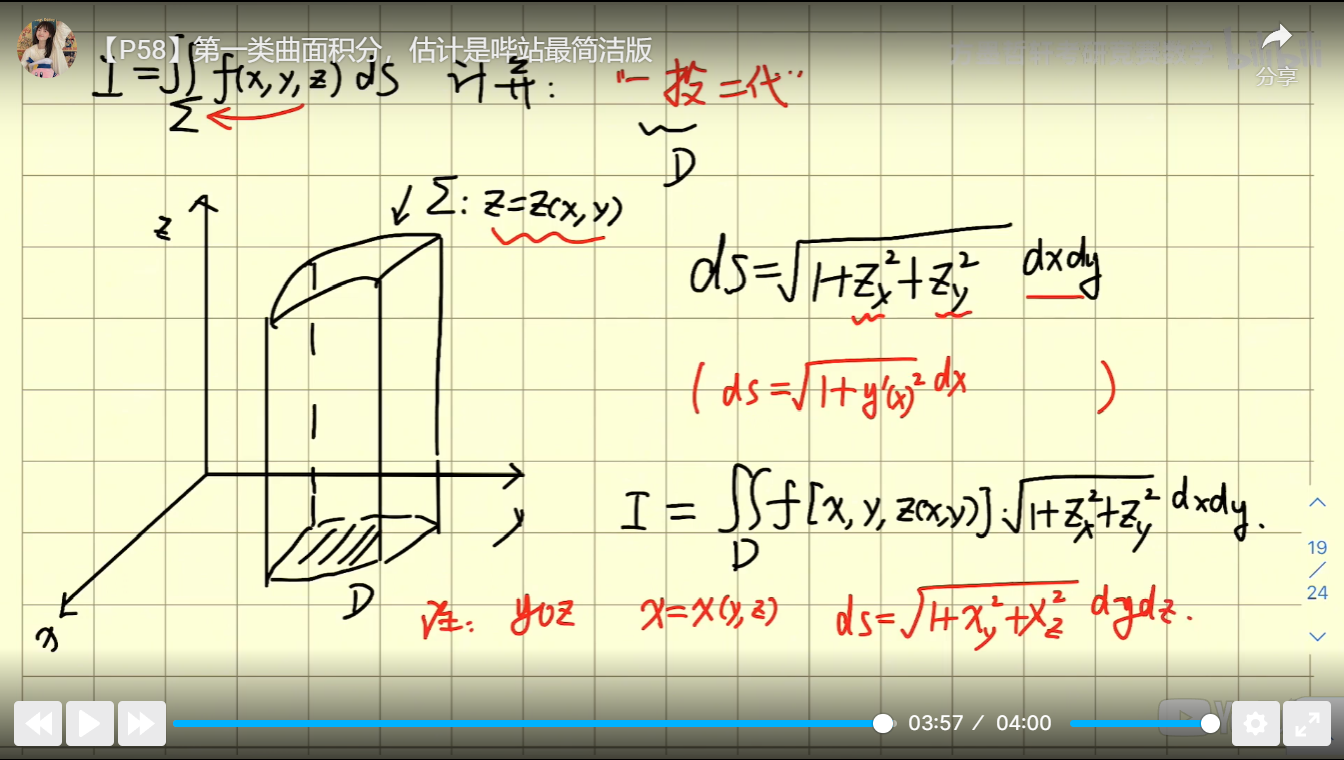 【P58】第一类曲面积分，估计是哔站最简洁版
分享
I = ∬_Σ f(x, y, z) ds 计算: "一投二代"
D
z
Σ: z=z(x, y)
ds = √(1+z_x²+z_y²) dxdy
( ds = √(1+y'(x)²) dx )
I = ∬_D f[x, y, z(x,y)]·√(1+z_x²+z_y²) dxdy.
y
D
x
注: yoz x=x(y,z) ds=√(1+x_y²+x_z²) dydz.
19
/
24
03:57 / 04:00